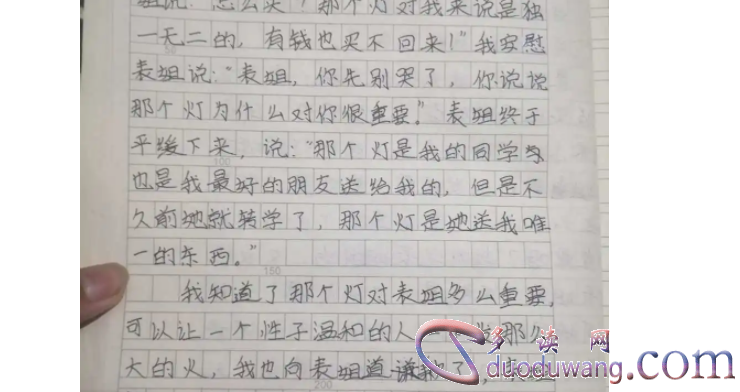 姐说：“怎么买？那个灯对我来说是独
一无二的，有钱也买不回来！”我安慰
表姐说：“表姐，你先别哭了，你说说
那个灯为什么对你很重要。”表姐终于
平缓下来，说：“那个灯是我的同学
100
也是我最好的朋友送给我的，但是不
久前她就转学了，那个灯是她送我唯
一的东西。”
150
我知道了那个灯对表姐多么重要，
可以让一个性子温和的人发那么
大的火，我也向表姐道歉了，
200
多读网
duoduwang.com